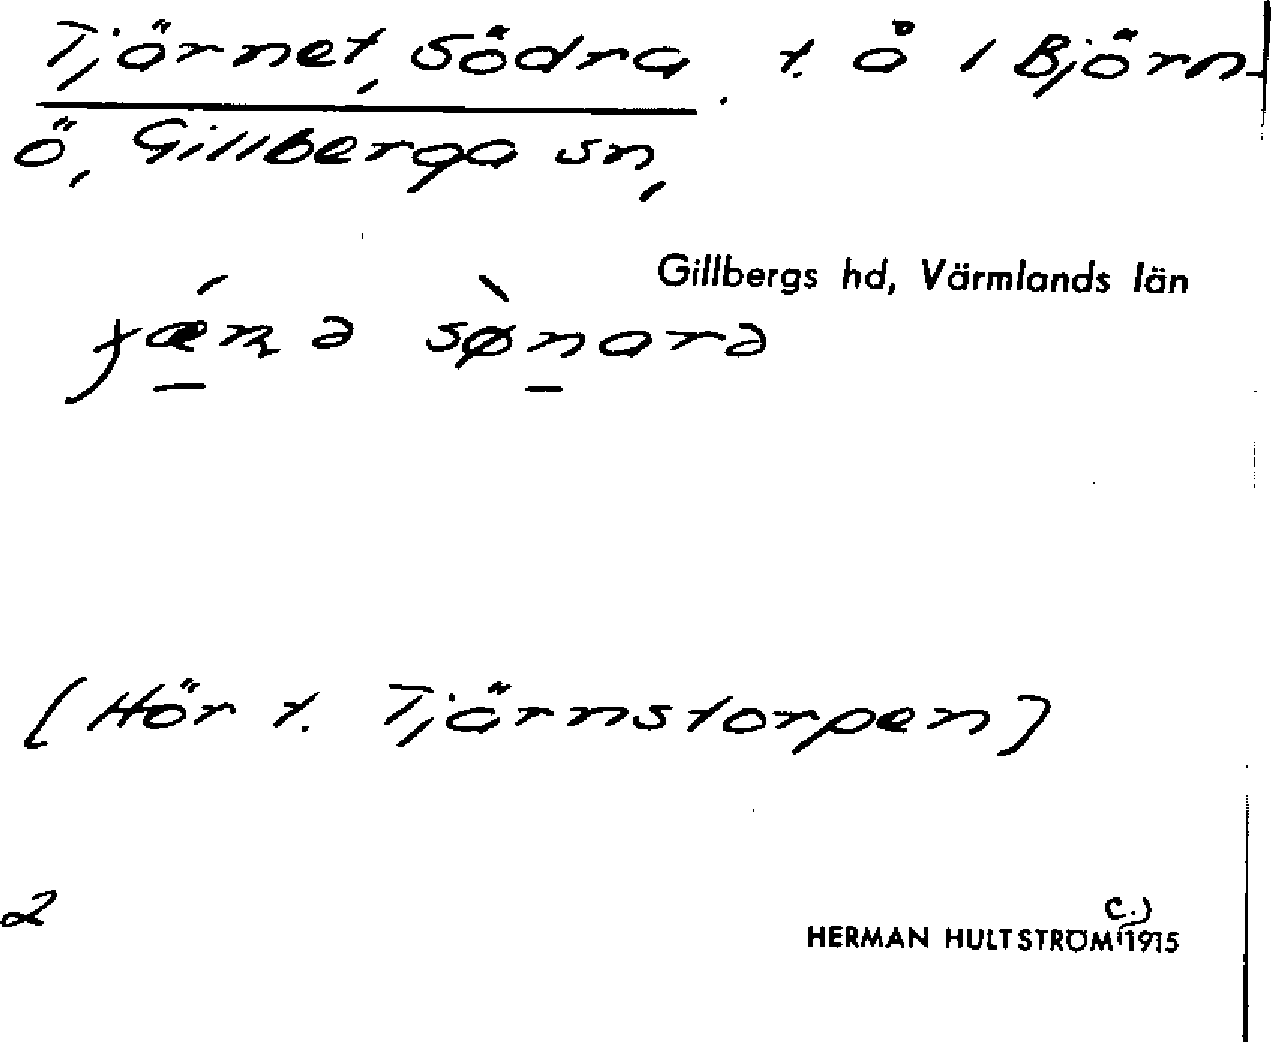 Tjärnet, Södra. t. å / Björn-
ö, Gillberga sn,
Gillbergs hd, Värmlands län
[Hör t. Tjärnstorpen]
2
C.)
HERMAN HULTSTRÖM (1915